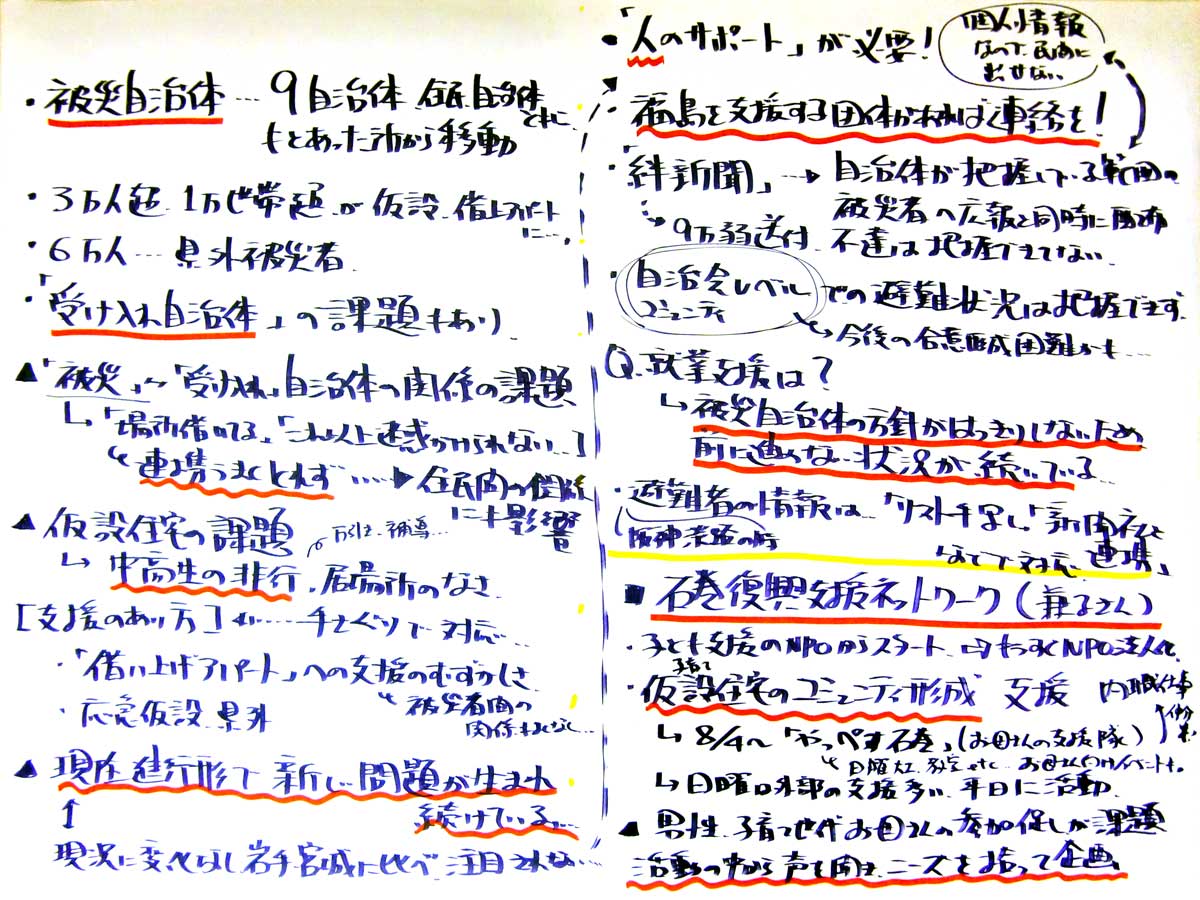 ・被災自治体…9自治体 住民、自治体ともに
もとあった所から移動
・3万人超、1万世帯超が仮設、借上アパート
に…。
・6万人…県外被災者
・「受け入れ自治体」の課題もあり
▲「被災」〜「受け入れ」自治体の関係の課題
↳「場所借りてる」「これ以上迷惑かけられない…」
連携うまくとれず……▶住民間の関係
にも影響
▲仮設住宅の課題
万引き、補導…
↳中高生の非行、居場所のなさ
[支援のあり方]……手さぐりで対応…
・「借り上げアパート」への支援のむずかしさ
被災者間の
関係もなく…
・応急仮設 県外
▲現在進行形で新しい問題が生まれ
続けている…
↑
現況に変化なし 岩手宮城に比べ注目されない…
・「人のサポート」が必要!
個人情報
なので民間に
出せない
・福島を支援する団体があれば連絡を!
・「絆新聞」…▶自治体が把握している範囲の
被災者へ広報と同時に配布
9万弱送付、不達は把握できてない
・自治会レベル
コミュニティ
での避難状況は把握できず
今後の合意形成困難かも…
Q.就業支援は?
↳被災自治体の方針がはっきりしないため
前に進めない状況が続いている…
・避難者の情報は…「リスト手写し」「新聞社と
連携」
阪神淡路の時
などで対応
■石巻復興支援ネットワーク(兼子さん)
・子ども支援のNPOからスタート ⇨もうすぐNPO法人化
子育て
・仮設住宅のコミュニティ形成 支援 内職仕事
↳8/4〜「やっぺす石巻」(お母さんの支援隊)
日曜大工教室 etc… お母さん向けイベントも。
↳日曜は外部の支援多い、平日に活動
▲男性、子育て世代お母さんの参加促しが課題
活動の中から声を聞き、ニーズを拾って企画